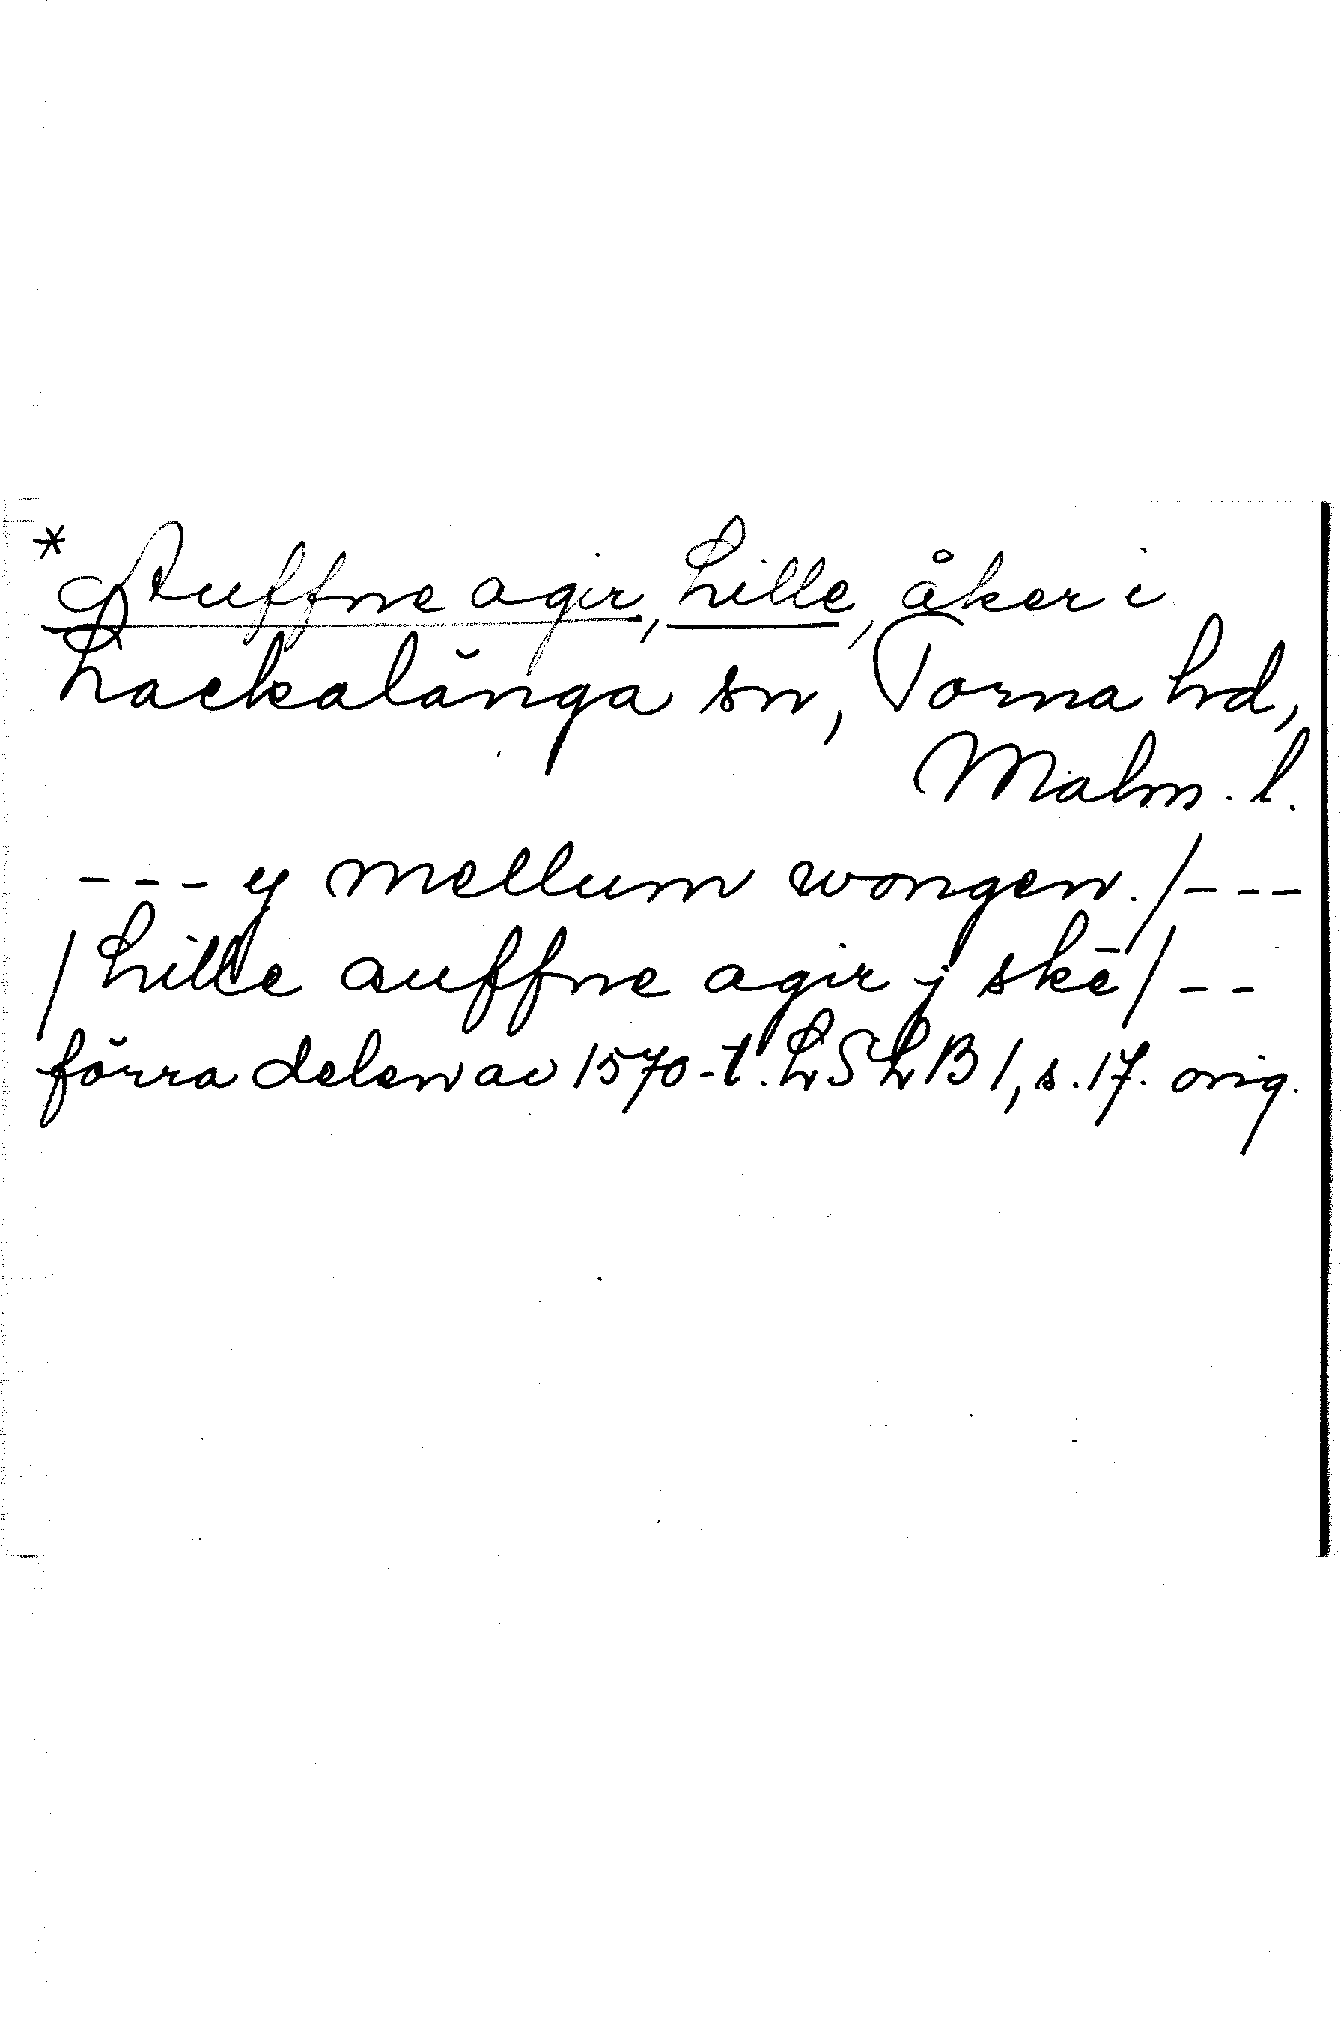 * Auffne agir, Lille, åker i
Lackalänga sn, Torna hd,
Malm. l.
--- y mellum wongen. /---
/ Lille auffne agir j skē / --
förra delen av 1570-t. LSLB 1, s. 17. orig.